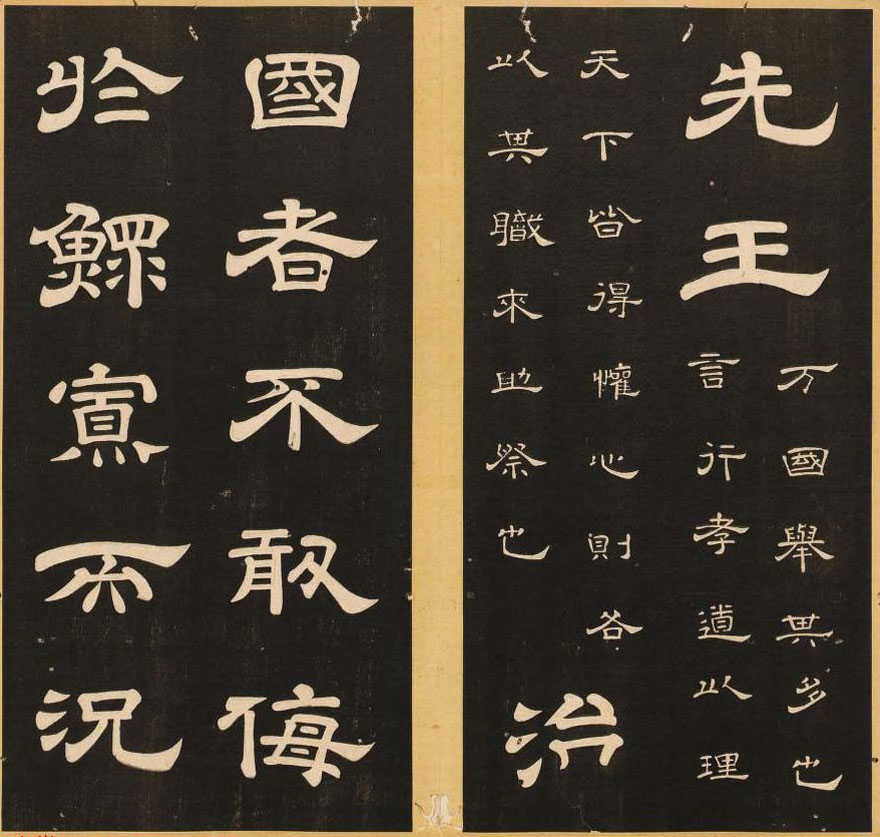 先王
万國舉其多也
言行孝道以理
天下皆得懽心則各
以其職來助祭也
治
國者不敢侮
於鰥寡而況